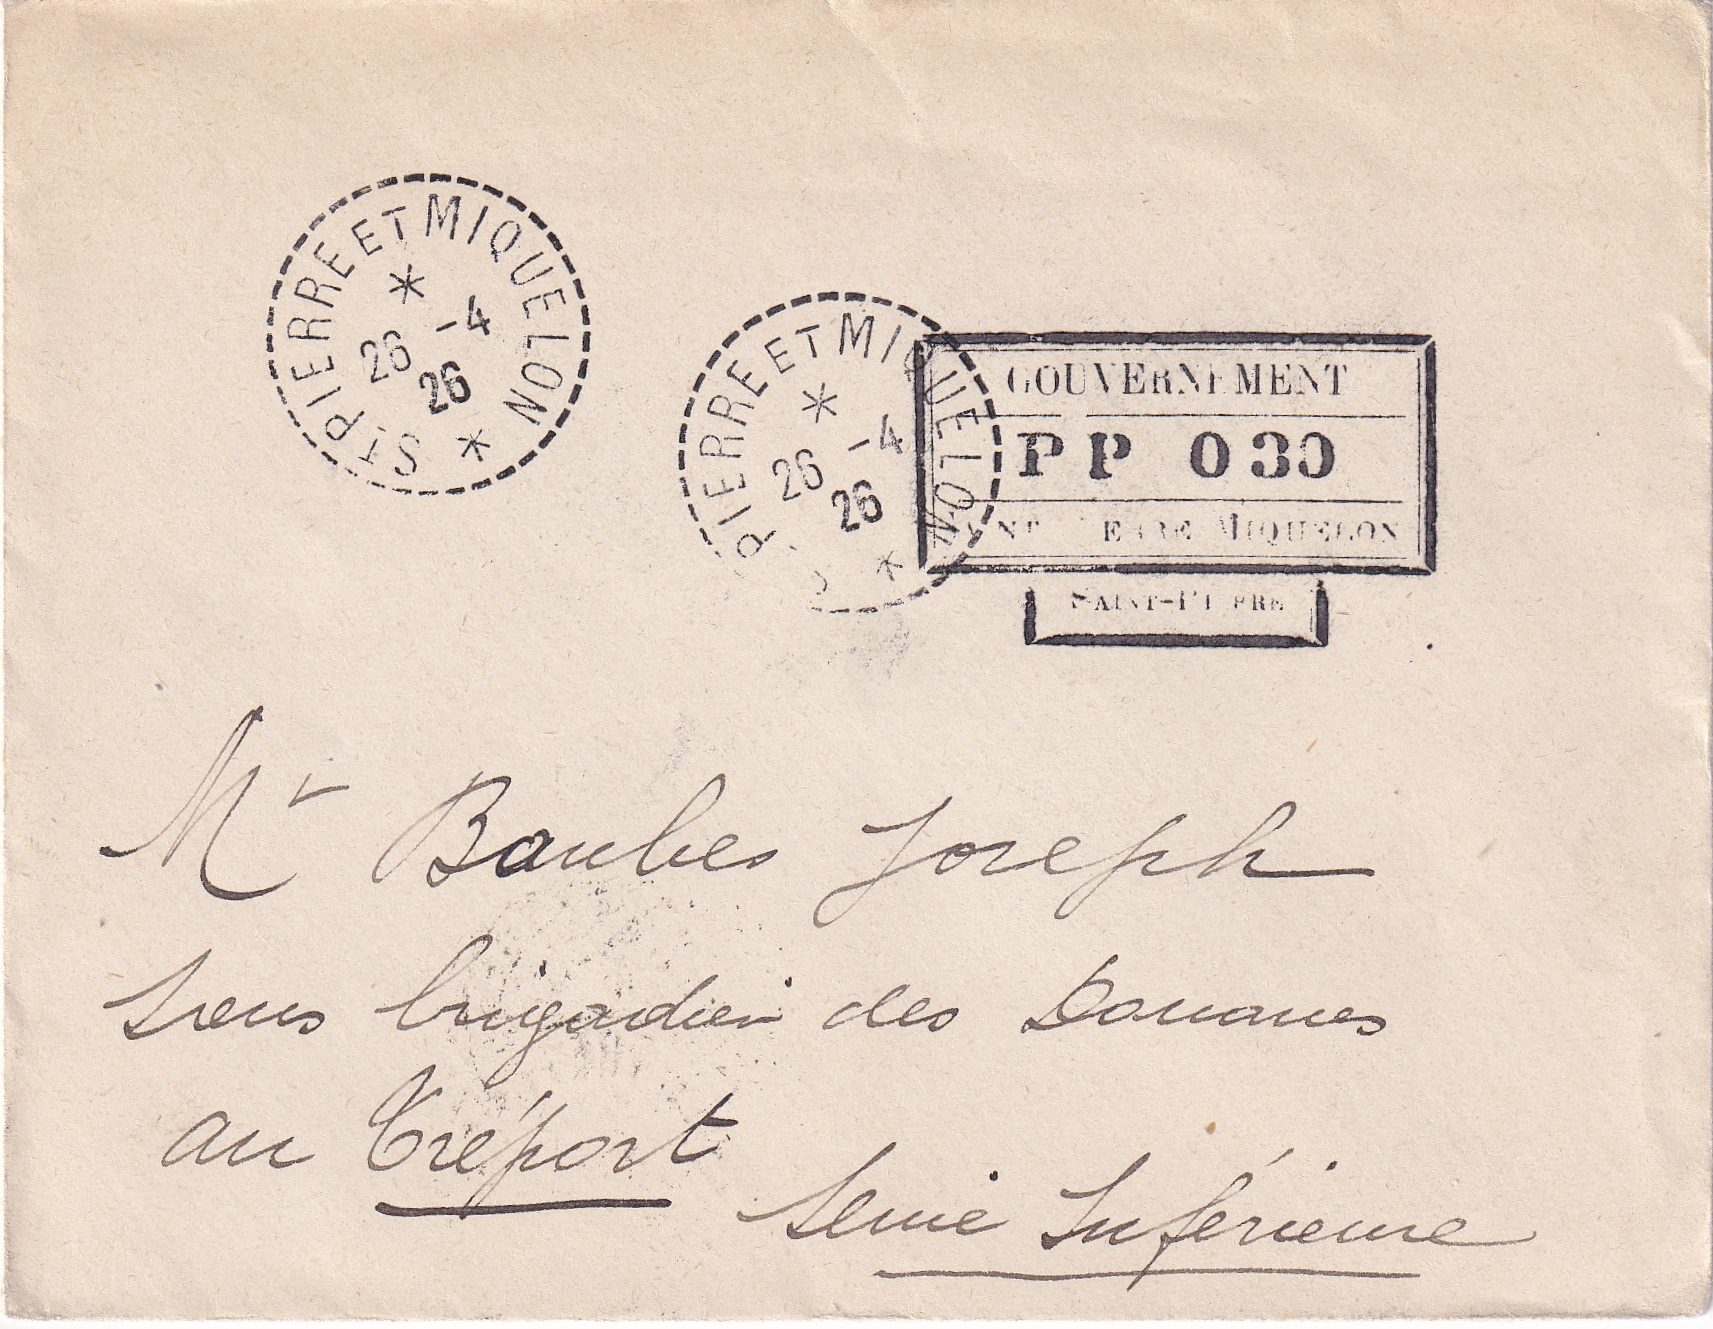 ST PIERRE ET MIQUELON
26 -4
26
PIERRE ET MIQUELON
26 -4
26
GOUVERNEMENT
PP 030
MIQUELON
SAINT-PIERRE
Mr Baubes Joseph
Sous brigadier des Douanes
au Tréport
Seine Inférieure